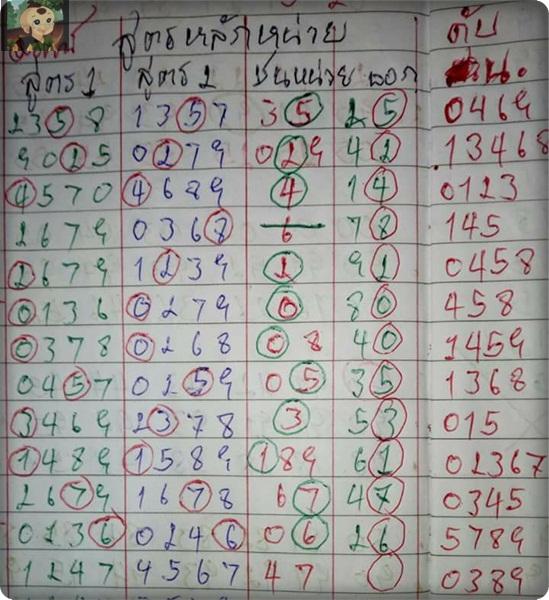 สูตรหลักหน่วย ดับ
สูตร 1 สูตร 2 ชนหน่วย ออก น.
2358 1357 35 25 0469
9025 0279 029 42 13468
4570 4689 4 14 0123
2679 0368 6 78 145
2679 1239 2 92 0458
0136 0279 0 80 458
0378 0268 08 40 1459
0457 0259 05 35 1368
3469 2378 3 53 015
1489 1589 189 61 02367
2679 1678 67 47 0345
0236 0246 06 26 5789
1247 4567 47 0389